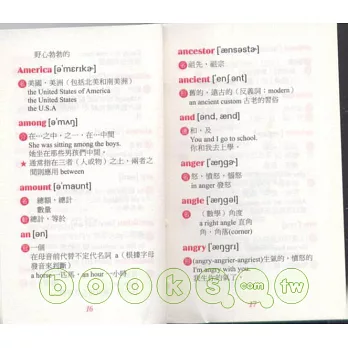 野心勃勃的
America [əˋmɛrɪkɚ]
名 美國,美洲(包括北美和南美洲)
the United States of America
the United States
the U.S.A
among [əˋmʌŋ]
介 在…之中,之一,在…中間
She was sitting among the boys.
她坐在那些男孩們中間。
★ 通常指在三者(人或物)之上,兩者之
間則應用 between
amount [əˋmaunt]
名 總額,總計
數量
動 總計,等於
an [ən]
冠 一個
在母音前代替不定代名詞 a(根據字母
發音來判斷)
a horse 一匹馬, an hour 一小時
16
ancestor [ˋænsɛstɚ]
名 祖先,祖宗
ancient [ˋenʃənt]
形 舊的,遠古的(反義詞:modern)
an ancient custom 古老的習俗
and [ənd, ænd]
連 和,及
You and I go to school.
你和我去上學。
anger [ˋæŋgɚ]
名 怒,憤怒,惱怒
in anger 發怒
angle [ˋæŋgəl]
名 (數學)角度
a right angle 直角
角,角落(corner)
angry [ˋæŋgrɪ]
形 (angry-angrier-angriest)生氣的,憤怒的
I'm angry with you.
我生你的氣了。
17
books.com.tw